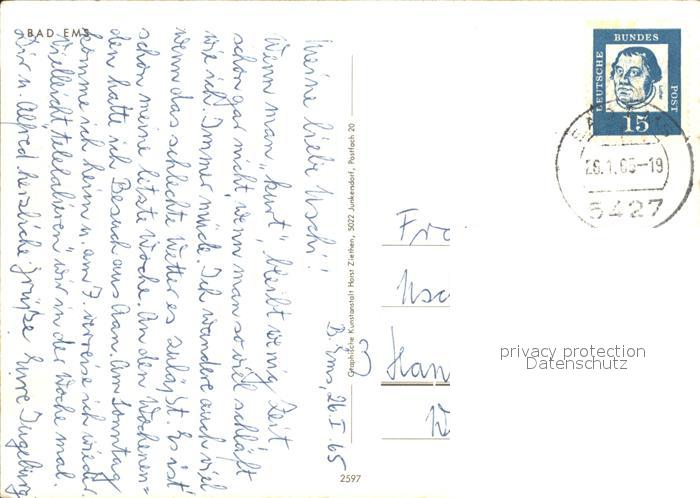 BAD EMS
B. Ems, 26.I.65
Meine liebe Uschi!
Wenn man „kurt", bleibt wenig Zeit
schon gar nicht, wenn man so viel schläft
wie ich. Immer müde. Ich wandere auch viel
wenn das schlechte Wetter es zuläßt. Es ist
schon meine letzte Woche. An den Wochenen=
den hatte ich Besuch aus Aan. Am Sonntag
komme ich heim u. am 7. verreise ich wieder.
Vielleicht „telefonieren" wir in der Woche mal.
Dir u. Alfred herzliche Grüße Eure Ingeburg
Graphische Kunstanstalt Horst Ziethen, 5022 Junkersdorf, Postfach 20
2597
DEUTSCHE
BUNDES
POST
15
26.1.65-19
5427
Fra
Usc
3 Han
privacy protection
Datenschutz